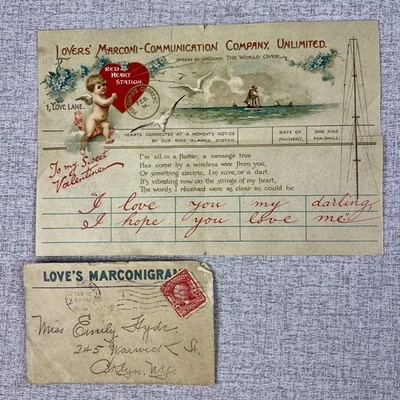 LOVERS' MARCONI-COMMUNICATION COMPANY, UNLIMITED.
THE WORLD OVER.
RED HEART STATION.
FEB. 14.
1, LOVE LANE.
HEARTS CONNECTED AT A MOMENT'S NOTICE
BY OUR SIDE GLANCE SYSTEM.
RATE OF PAYMENT,
ONE KISS PER SMILE.
To my Sweet Valentine
I'm all in a flutter, a message true
Has come by a wireless wire from you,
Or something electric, I'm sure, or a dart,
It's vibrating now on the strings of my heart,
The words I received were as clear as could be
"I love you my darling,
I hope you love me."
LOVE'S MARCONIGRAM
Miss Emily Hyde
245 Warwick St.
Bklyn. N.Y.